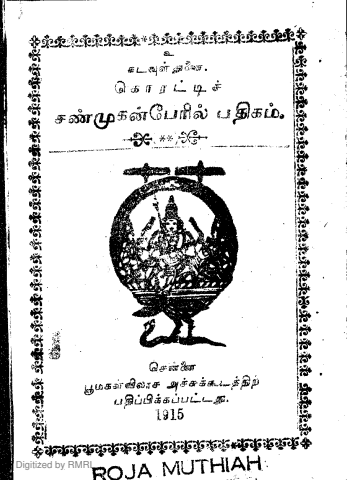 உ
கடவுள் துணை.
கொரட்டிச்
சண்முகன்பேரில் பதிகம்.
சென்னை
பூமகள்விலாச அச்சுக்கூடத்திற்
பதிப்பிக்கப்பட்டது.
1915
Digitized by RMRL
ROJA MUTHIAH